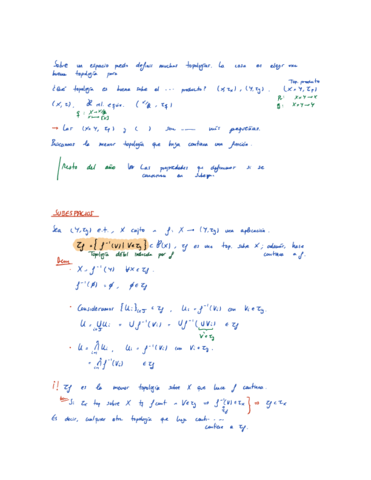 Sobre un espacio puedo definir muchas topologías. La cosa es elegir una
buena topología para
¿Qué topología es buena sobre el ... producto? (X, τx), (Y, τy). (X × Y, τp)
Top. producto
p: X × Y → X
q: X × Y → Y
(X, τ), rel. equiv. (X/R, τq)
q: X → X/R
x → [x]
→ Las (X × Y, τp) y ( ) son más pequeñas.
Buscamos la menor topología que haga continua una función.
Resto del año Las propiedades que definamos si se
conservan en subesp.
SUBESPACIOS
Sea (Y, τy) e.t., X cjto f: X → (Y, τy) una aplicación.
τf = { f⁻¹(V) | V ∈ τy } ⊂ P(X), τf es una top. sobre X; además, hace
continua a f.
Topología débil inducida por f
Dem
· X = f⁻¹(Y) X ∈ τf
f⁻¹(∅) = ∅, ∅ ∈ τf
· Consideramos {Ui}i∈I ⊂ τf, Ui = f⁻¹(Vi) con Vi ∈ τy
U = ∪ Ui = ∪ f⁻¹(Vi) = f⁻¹(∪ Vi) ∈ τf
V ∈ τy
· U = ∩ Ui, Ui = f⁻¹(Vi) con Vi ∈ τy
= ∩ f⁻¹(Vi) ∈ τf
¡! τf es la menor topología sobre X que hace f continua.
Si τx top sobre X tq f cont → V ∈ τy ⇒ f⁻¹(V) ∈ τx ⇒ τf ⊂ τx
τf
Es decir, cualquier otra topología que haga conti...
contiene a τf.